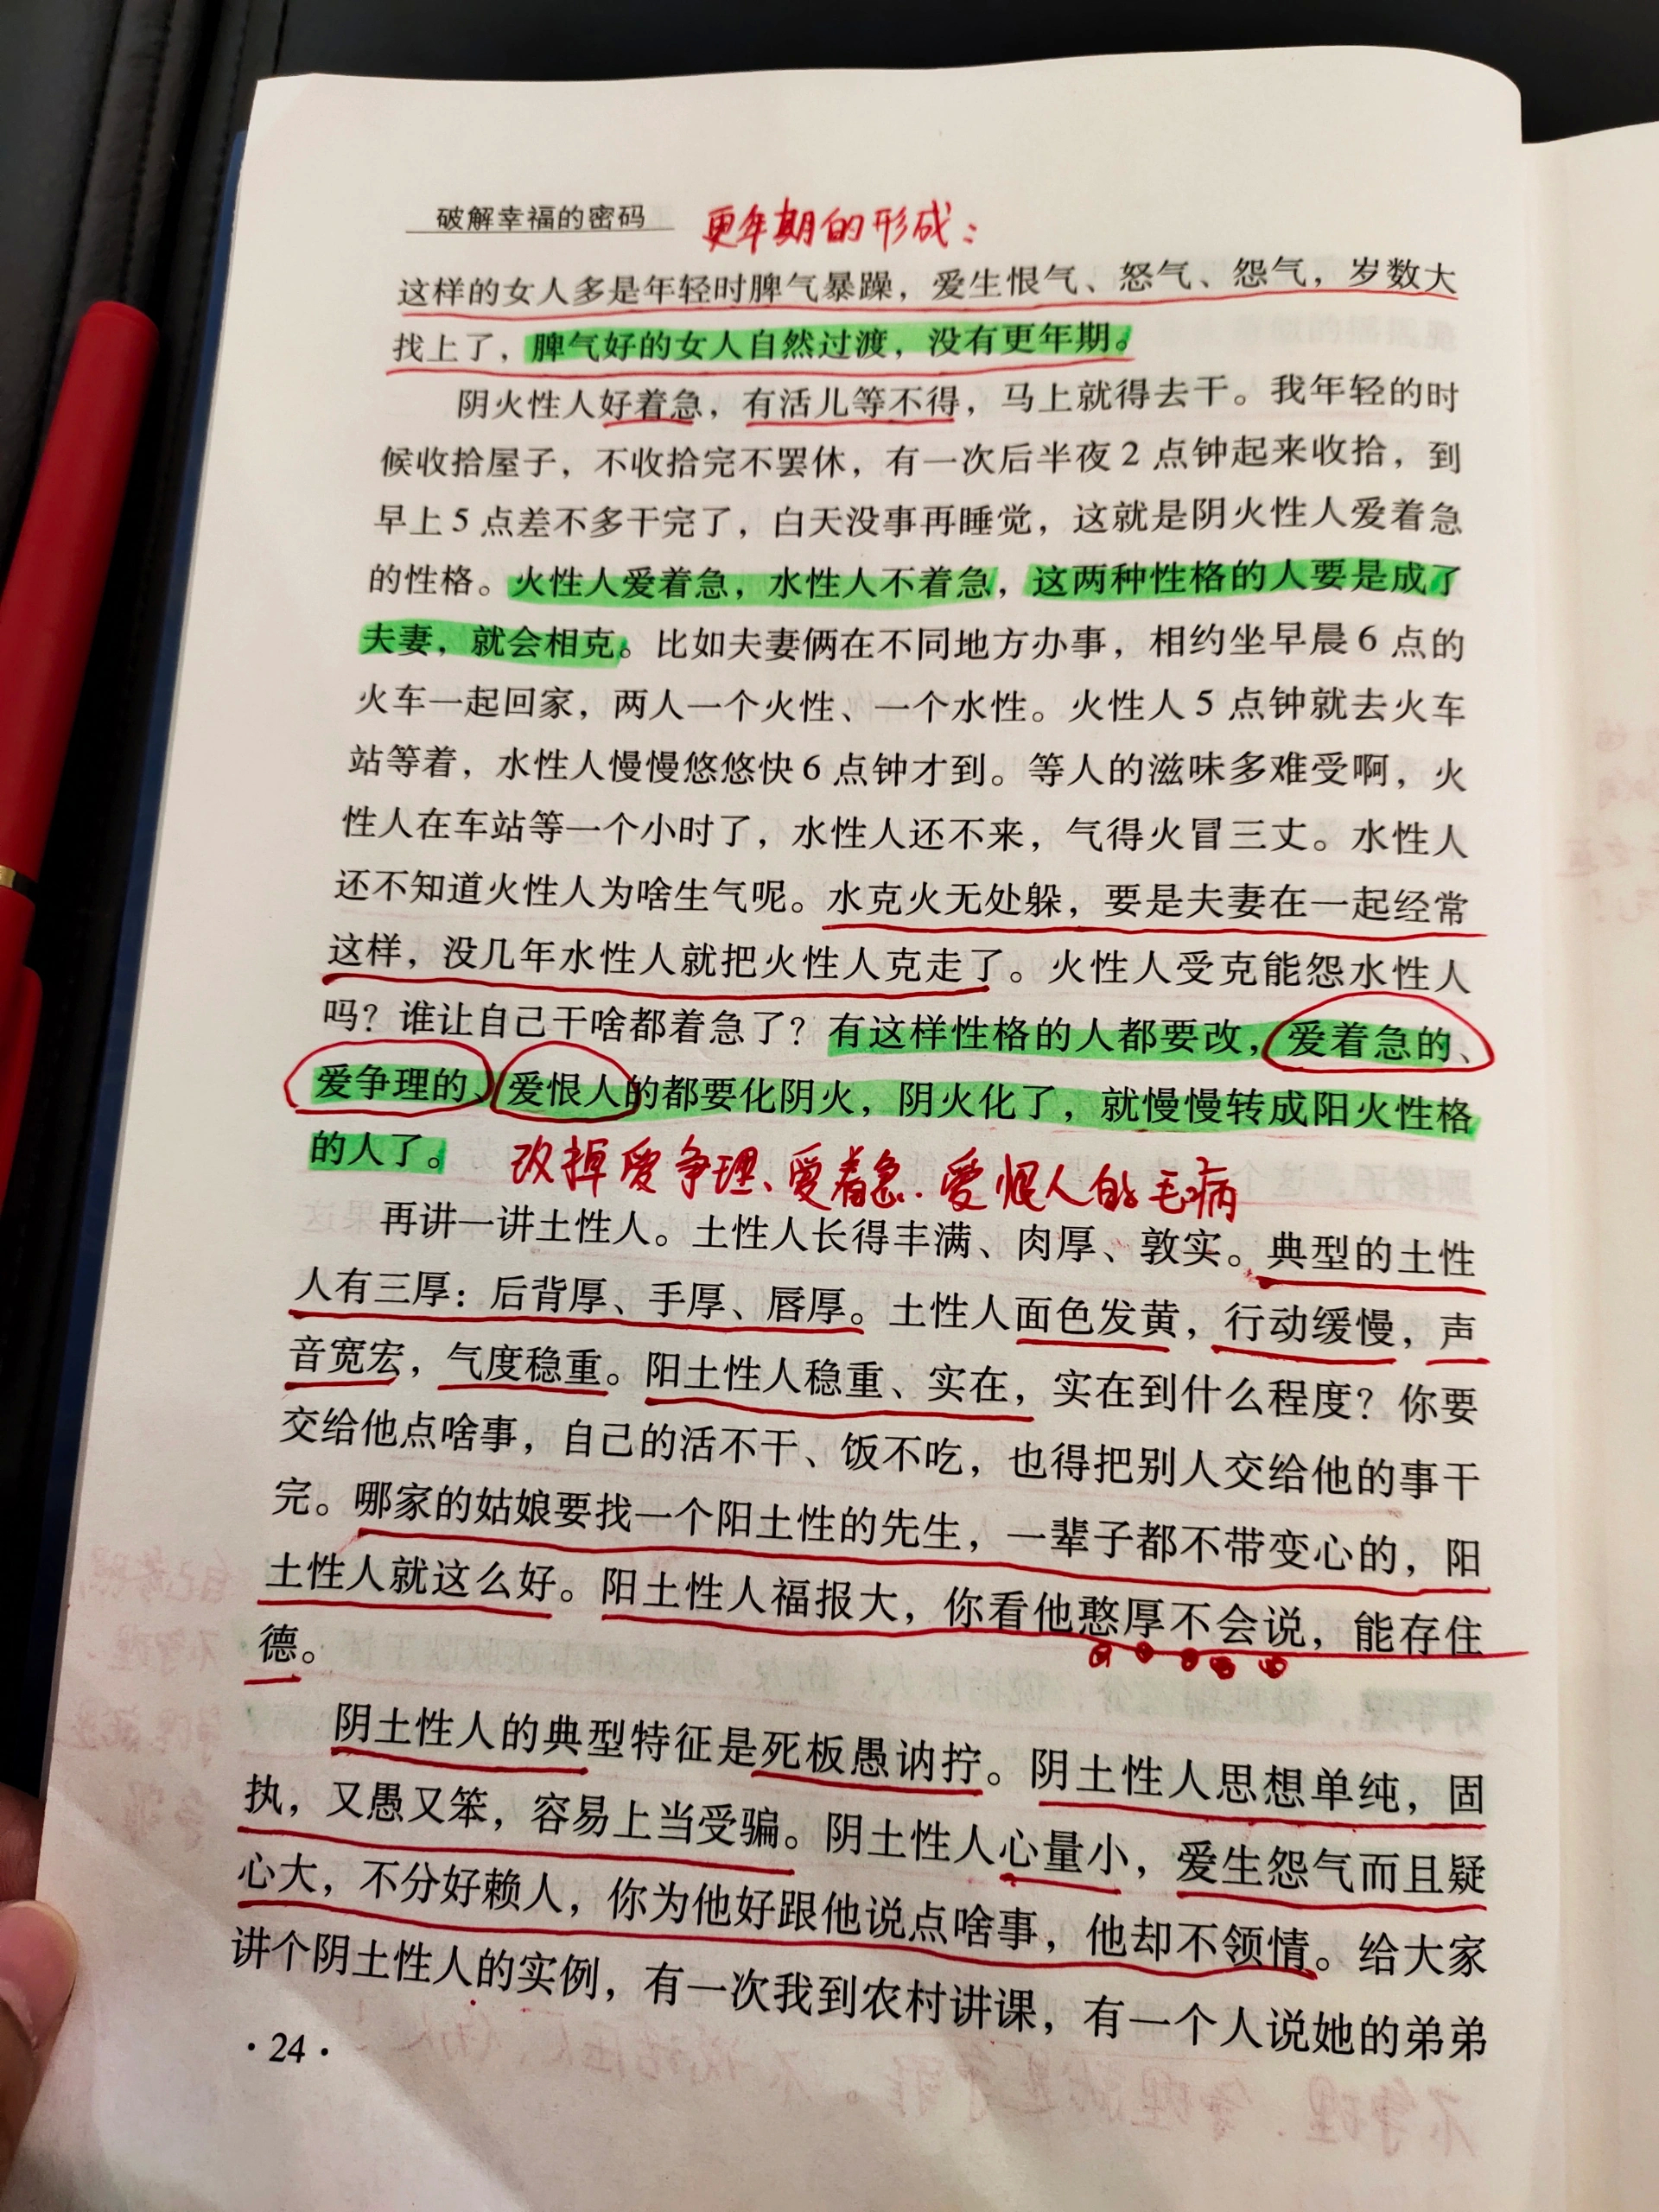 破解幸福的密码 更年期的形成:
这样的女人多是年轻时脾气暴躁，爱生恨气、怒气、怨气，岁数大
找上了，脾气好的女人自然过渡，没有更年期。
阴火性人好着急，有活儿等不得，马上就得去干。我年轻的时
候收拾屋子，不收拾完不罢休，有一次后半夜2点钟起来收拾，到
早上5点差不多干完了，白天没事再睡觉，这就是阴火性人爱着急
的性格。火性人爱着急，水性人不着急，这两种性格的人要是成了
夫妻，就会相克。比如夫妻俩在不同地方办事，相约坐早晨6点的
火车一起回家，两人一个火性、一个水性。火性人5点钟就去火车
站等着，水性人慢慢悠悠快6点钟才到。等人的滋味多难受啊，火
性人在车站等一个小时了，水性人还不来，气得火冒三丈。水性人
还不知道火性人为啥生气呢。水克火无处躲，要是夫妻在一起经常
这样，没几年水性人就把火性人克走了。火性人受克能怨水性人
吗？谁让自己干啥都着急了？有这样性格的人都要改，爱着急的、
爱争理的、爱恨人的都要化阴火，阴火化了，就慢慢转成阳火性格
的人了。 改掉爱争理、爱着急、爱恨人的毛病
再讲一讲土性人。土性人长得丰满、肉厚、敦实。典型的土性
人有三厚：后背厚、手厚、唇厚。土性人面色发黄，行动缓慢，声
音宽宏，气度稳重。阳土性人稳重、实在，实在到什么程度？你要
交给他点啥事，自己的活不干、饭不吃，也得把别人交给他的事干
完。哪家的姑娘要找一个阳土性的先生，一辈子都不带变心的，阳
土性人就这么好。阳土性人福报大，你看他憨厚不会说，能存住
德。
阴土性人的典型特征是死板愚讷拧。阴土性人思想单纯，固
执，又愚又笨，容易上当受骗。阴土性人心量小，爱生怨气而且疑
心大，不分好赖人，你为他好跟他说点啥事，他却不领情。给大家
讲个阴土性人的实例，有一次我到农村讲课，有一个人说她的弟弟
·24·